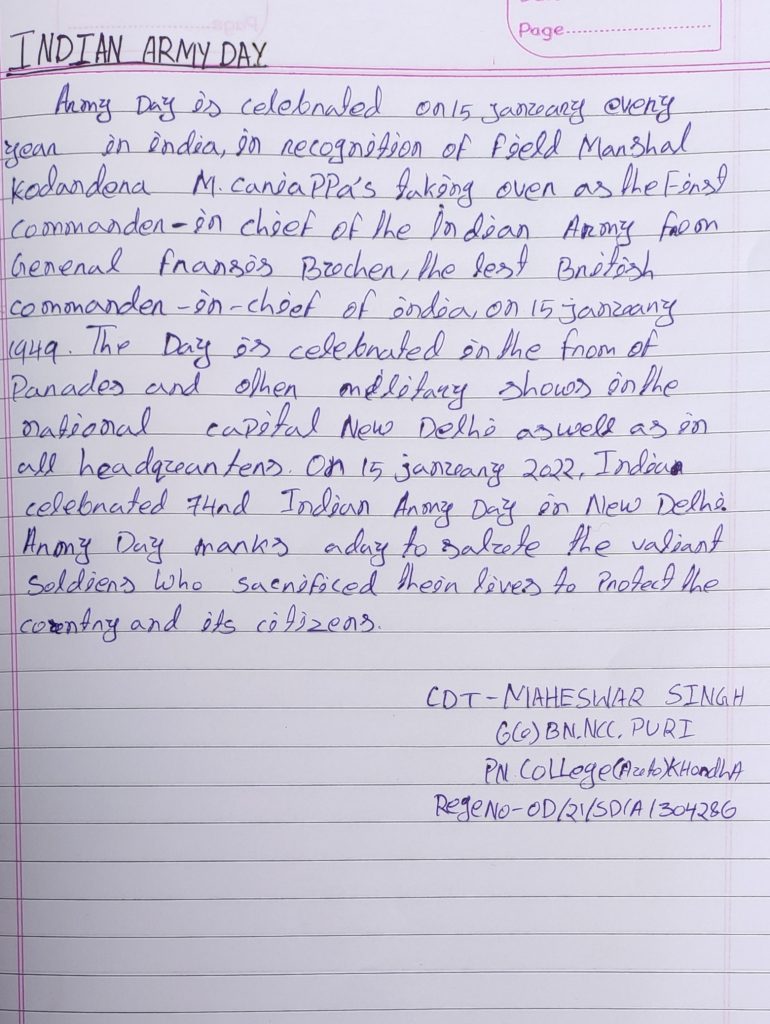 Page
INDIAN ARMY DAY
Army Day is celebrated on 15 january every
year in india, in recognition of Field Marshal
Kodandera M. cariaPPa's taking over as the First
Commander-in chief of the Indian Army from
General fransis Brocher, the lest British
commander-in-chief of india, on 15 january
1949. The Day is celebrated in the from of
Parades and other military shows in the
national capital New Delhi as well as in
all headquarters. On 15 january 2022, India
celebrated 74nd Indian Army Day in New Delhi.
Army Day marks a day to salute the valiant
soldiers who sacrificed their lives to Protect the
country and its citizens.
CDT-MAHESWAR SINGH
6(O) BN.NCC. PURI
PN.College(Auto)KHordhA
Rege No-OD/21/SD/A/304286